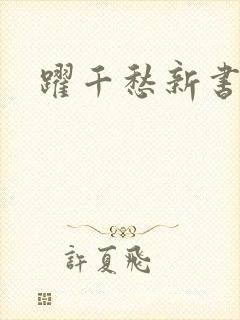 躍千愁新書
許夏飛